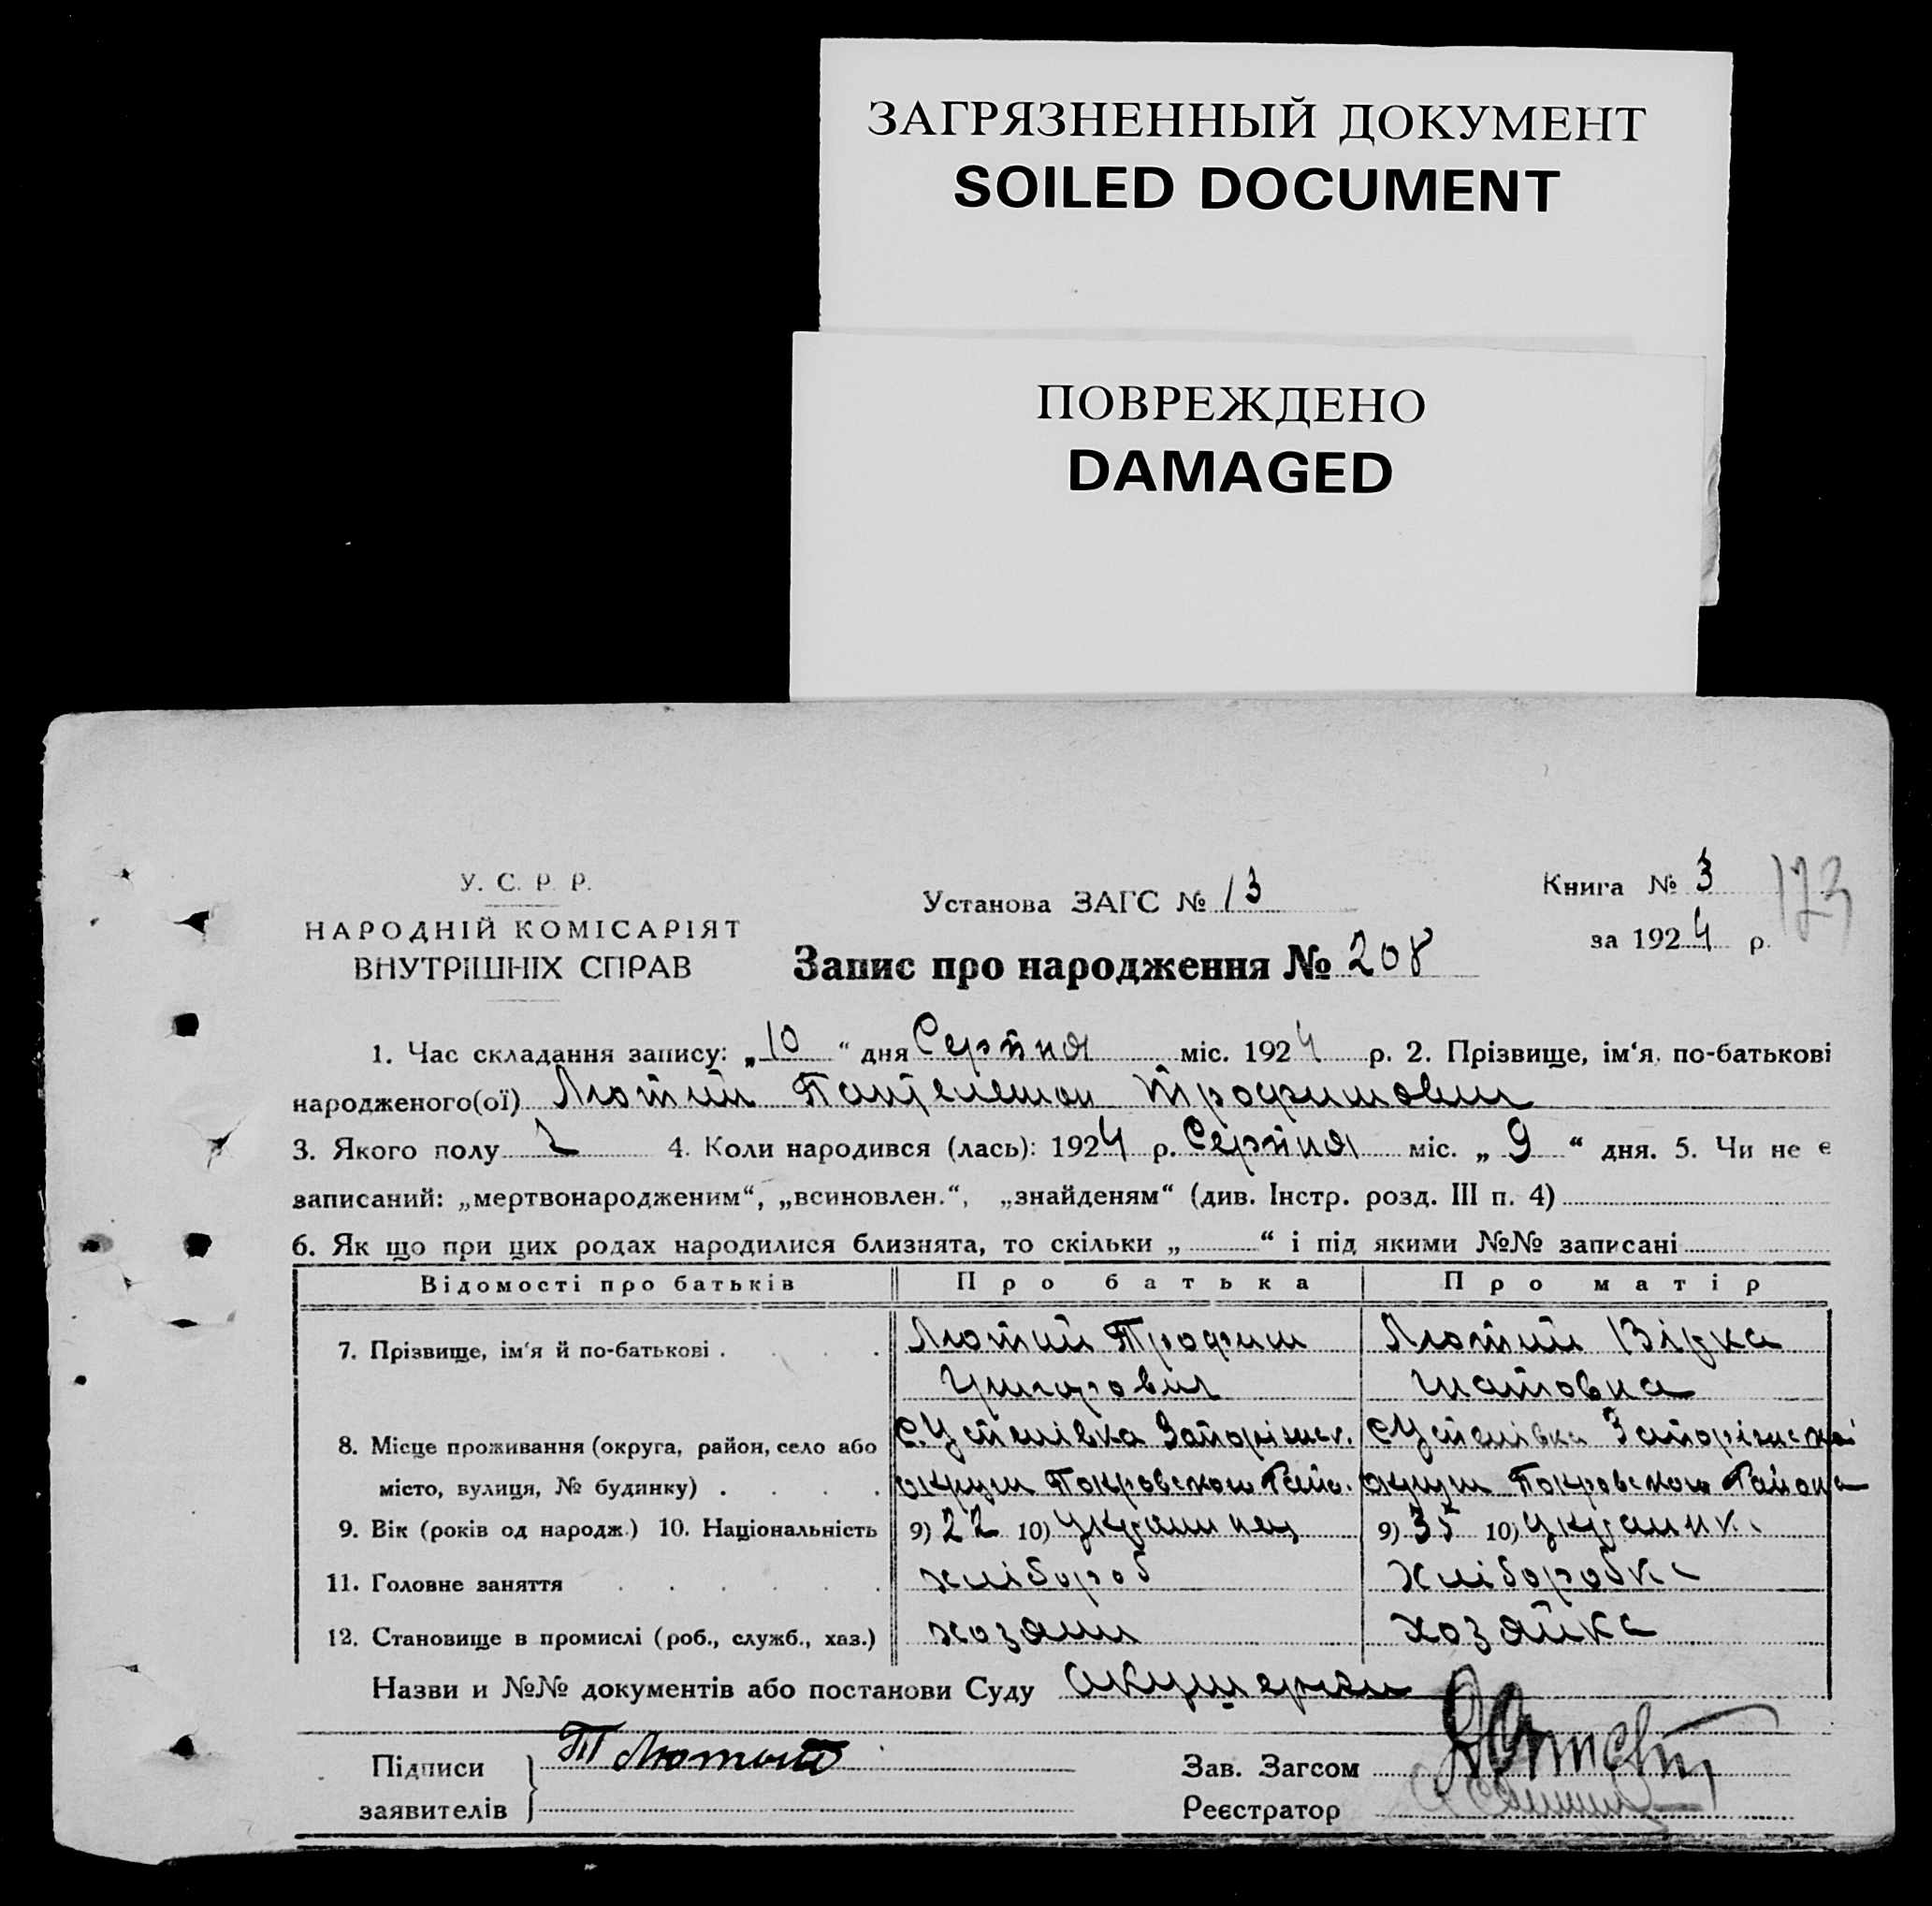 ЗАГРЯЗНЕННЫЙ ДОКУМЕНТ
SOILED DOCUMENT
ПОВРЕЖДЕНО
DAMAGED
У. С. Р. Р.
НАРОДНІЙ КОМІСАРІЯТ
ВНУТРІШНІХ СПРАВ
Установа ЗАГС № 13
Книга № 3
173
за 1924 р.
Запис про народження № 208
1. Час складання запису: „10“ дня Серпня міс. 1924 р. 2. Прізвище, ім‘я, по-батькові
народженого(ої) Лютий Пантелемон Трофимович
3. Якого полу ч 4. Коли народився (лась): 1924 р. Серпня міс. „9“ дня. 5. Чи не є
записаний: „мертвонародженим“, „всиновлен.“, „знайденям“ (див. Інстр. розд. III п. 4)
6. Як що при цих родах народилися близнята, то скільки „ “ і під якими №№ записані
Відомості про батьків Про батька Про матір
7. Прізвище, ім‘я й по-батькові Лютий Трофим Лютий
Григорович
8. Місце проживання (округа, район, село або С. Успенівка Запоріжск. С Успенівка Запоріжскої
місто, вулиця, № будинку) округи Покровского Райо. округи Покровского Района
9. Вік (років од народж.) 10. Національність 9) 22 10) Украинец 9) 35 10) Украинка
11. Головне заняття хлібороб Хліборобка
12. Становище в промислі (роб., служб., хаз.) хозяин хозяйка
Назви и №№ документів або постанови Суду акушерки
Підписи Т Лютый Зав. Загсом
заявителів Реєстратор